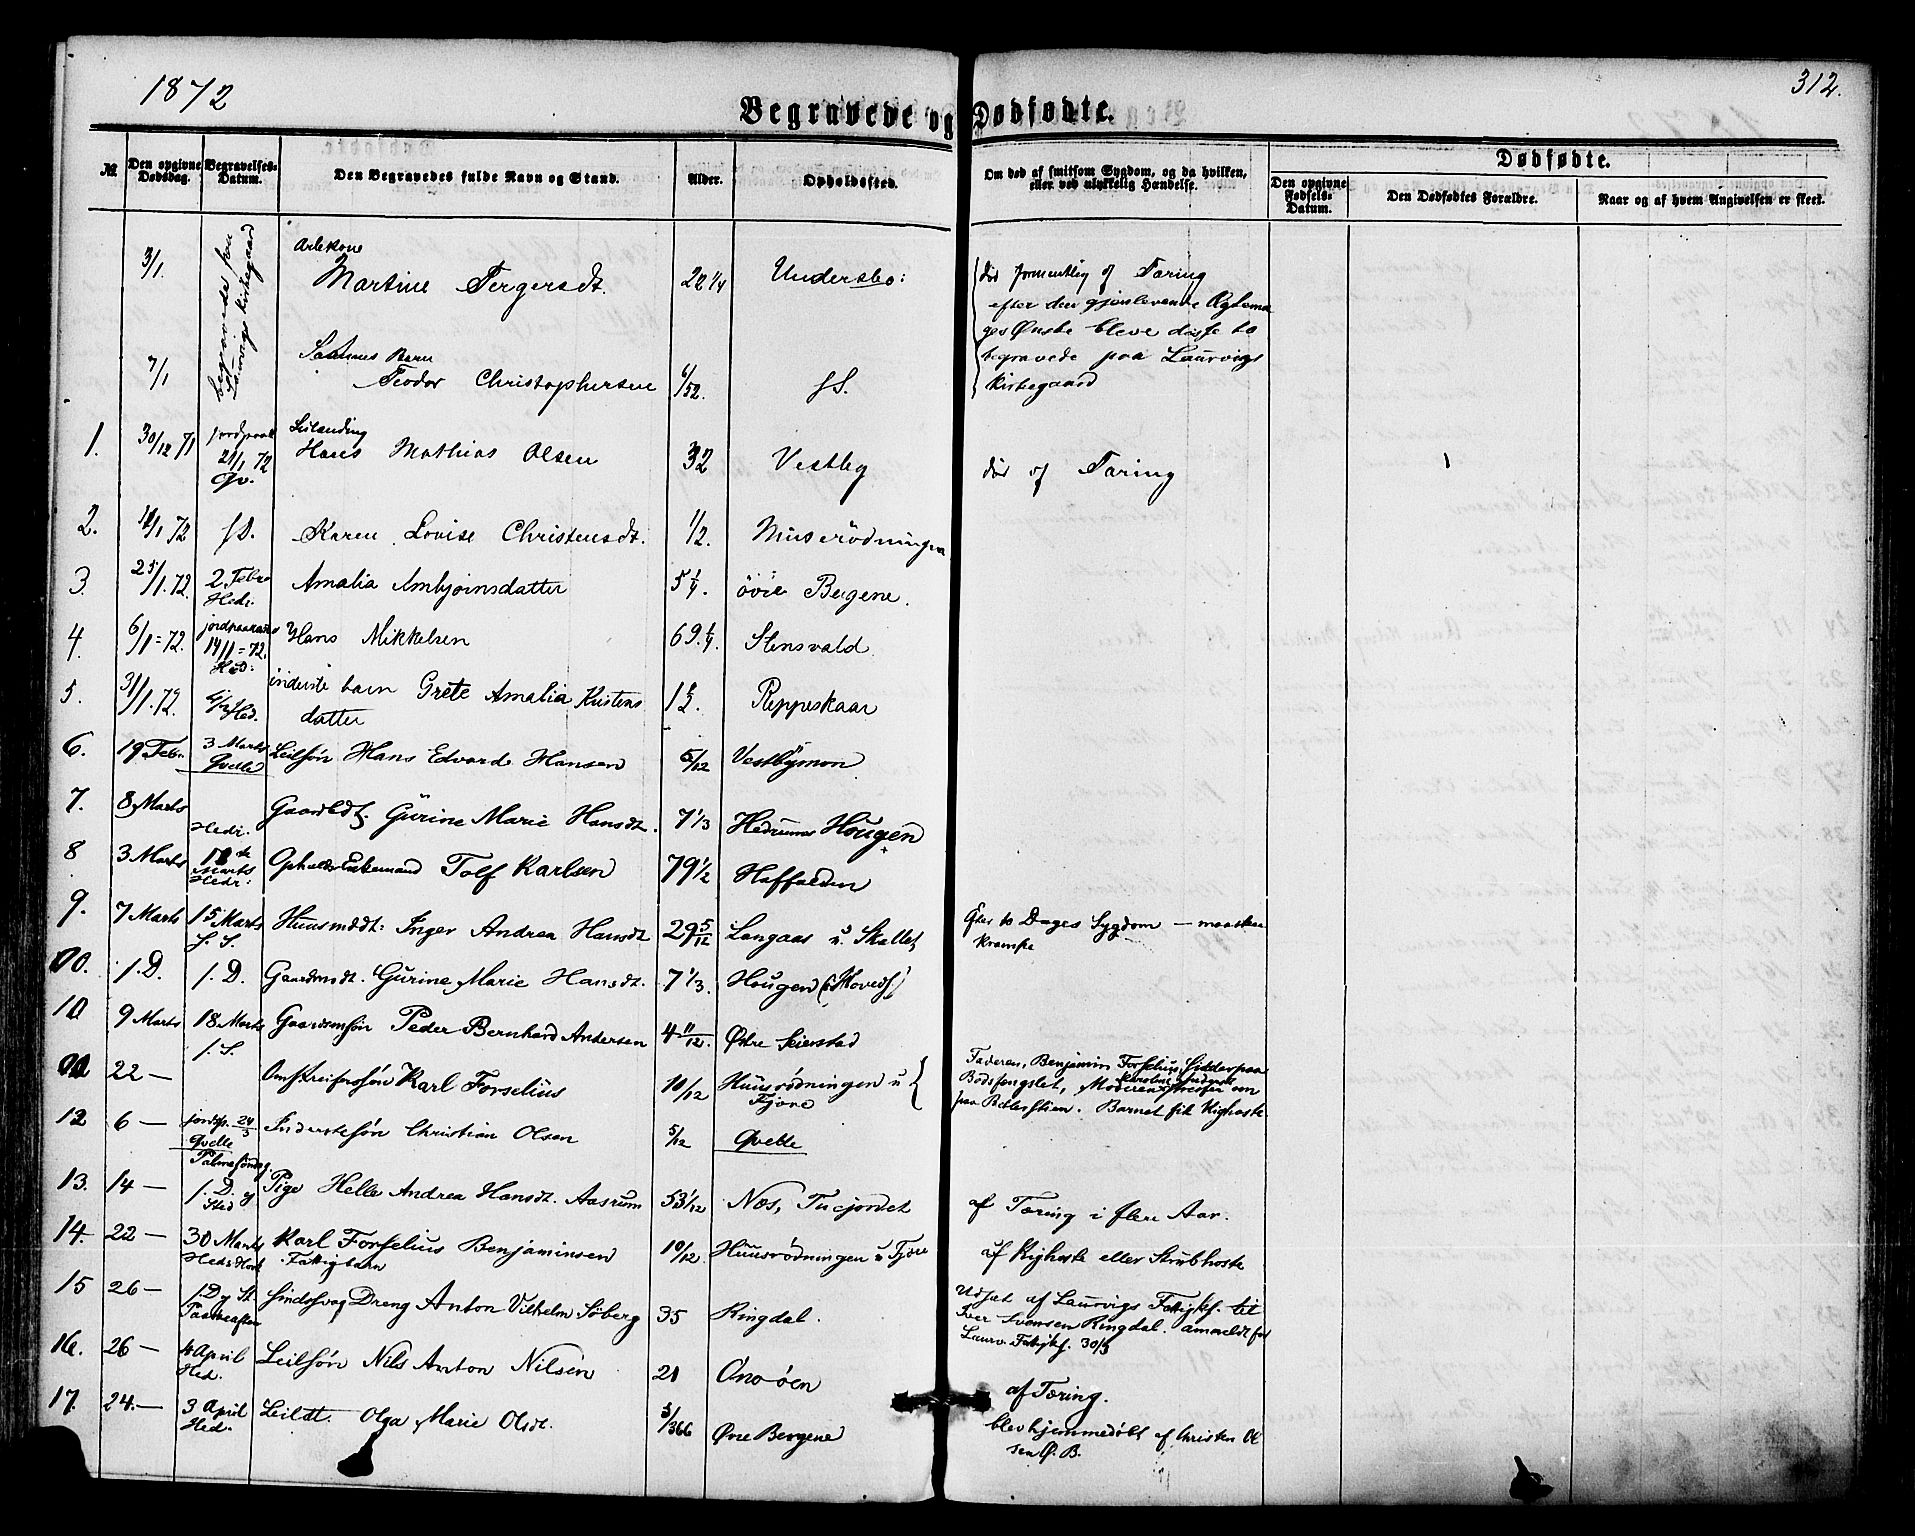 1872
312.
Begravede og Dødfødte.
№
Den opgivne Dødsdag.
Begravelses-Datum.
Den Begravedes fulde Navn og Stand.
Alder.
Opholdssted.
Om død af smitsom Sygdom, og da hvilken, eller ved ulykkelig Hændelse.
Dødfødte.
Den opgivne Fødsels-Datum.
Den Dødfødtes Forældre.
Naar og af hvem Angivelsen er skeet.
begravede paa Laurvigs Kirkegaard
3/1.
Martine Tergersdt.
22 1/4
Undersbo:
død formentlig af Tæring
efter den gjenlevende
Ønske bleve disse to
begravede paa Laurvigs
Kirkegaard
7/1
Sammes Barn
Teodor Christophersen
6/52.
s S.
1.
30/12 71
jordpaak
21/1 72
Qv.
Leilending
Hans Mathias Olsen
32
Vestby
død af Tæring
2.
14/1 72
s D.
Karen Lovise Christensdt.
1/2.
Muserödningen
3.
25/1.72.
2 Febr
Hedr.
Amalia Arnbjørnsdatter
5 1/4.
övre Bergene.
4.
6/1=72.
jordpaakas
14/1=72.
Hed:
Hans Mikkelsen
69.1/4
Stensvald
5.
31/1.72.
Hed.
inderste barn Grete Amalia Kristens
datter
1 1/2
Reppeskaar
6.
19 Febr.
3 Marts
Qvelle
Leilsøn Hans Edvard Hansen
5/12
Vestbymon
7.
8 Marts
Hedr.
Gaardbdt. Gurine Marie Hansdt.
7 1/3
Hedrums Hougen
8
3 Marts
Marts
Hedr:
Enkemand Tolf Karlsen
79 1/2
Haffalden
9.
7 Marts
15 Marts
s. S.
Huusmdt: Inger Andrea Hansdt
29 5/12
Langaas u. Skallet
Efter 10 Dages Sygdom — maaskee
Krampe
00.
s. D.
s. D.
Gaardmdt. Gurine Marie Hansdt.
7 1/3.
Hougen
10
9 Marts
18 Marts
s. S.
Gaardmsøn Peder Bernhard Andersen
4 11/12.
Østre Seierstad
22 —
Omstreifersøn Karl Forselius
10/12
Huusrødningen u
Fjære
Faderen, Benjamin Forselius, sidder paa
Bodsfengslet, Moderen Karoline Andersdt
Barnet fik Kighoste
12
6 —
jordsp. 24/3
Qvelle
Inderstesøn Christian Olsen
5/12
Qvelle
13.
14 —
Palmesøndag.
s. D.
Pige Helle Andrea Hansdt. Aasrum
53 1/12
Nes, Tuejordet
af Tæring i flere Aar.
14.
22 —
30 Marts
Karl Forselius Benjaminsen
Fattigbarn
10/12.
Huusrødningen u Fjære
af Kighoste eller Strubhoste
15
26 —
s. D. s St.
Paaskeaften
sindssvag Dreng Anton Vilhelm Søberg
35
Ringdal.
Udsat af Laurvigs Fattigk. til
Iver Svensen Ringdal. anmeldt for
Laurv. Fattigk. 30/3
16.
26 —
4 April
Hed.
Leilsøn Nils Anton Nilsen
21
Onsøen
af Tæring.
17.
24. —
3 April
Hed.
Leildt. Olga Marie Olsdt.
3/366
Øvre Bergene
blev hjemmedøbt af Christen Ol
sen Ø. B.